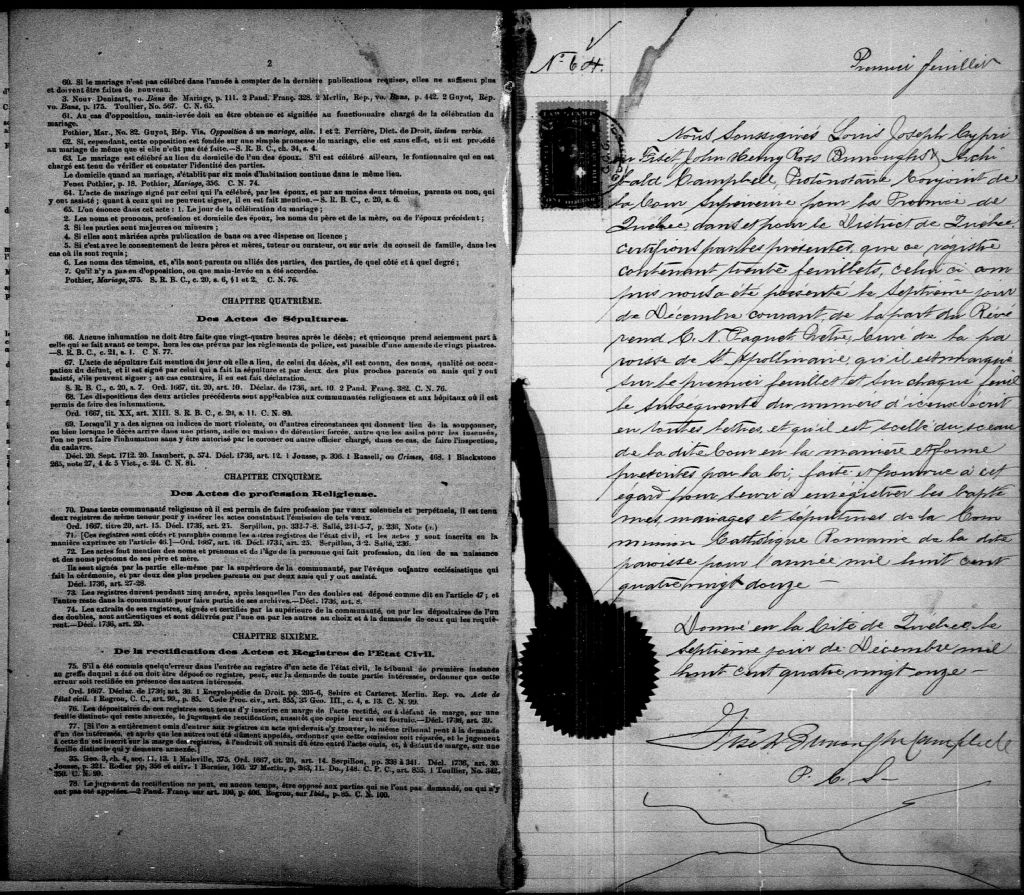 2
60. Si le mariage n'est pas célébré dans l'année à compter de la dernière publications requises, elles ne suffisent plus
et doivent être faites de nouveau.
3. Nouv Denizart, vo. Bans de Mariage, p. 111. 2 Pand. Franç. 328. 2 Merlin, Rép., vo. Bans, p. 442. 2 Guyot, Rép.
vo. Bans, p. 175. Toullier, No. 567. C. N. 65.
61. Au cas d'opposition, main-levée doit en être obtenue et signifiée au fonctionnaire chargé de la célébration du
mariage.
Pothier, Mar., No. 82. Guyot, Rép. Via. Opposition à un mariage, alin. 1 et 2. Ferrière, Dict. de Droit, iisdem verbis.
62. Si, cependant, cette opposition est fondée sur une simple promesse de mariage, elle est sans effet, et il est procédé
au mariage de même que si elle n'eût pas été faite.—S. R. B. C., ch. 34, s. 4.
63. Le mariage est célébré au lieu du domicile de l'un des époux. S'il est célébré ailleurs, le fontionnaire qui en est
chargé est tenu de vérifier et constater l'identité des parties.
Le domicile quant au mariage, s'établit par six mois d'habitation continue dans le même lieu.
Fenet Pothier, p. 18. Pothier, Mariage, 356. C. N. 74.
64. L'acte de mariage signé par celui qui l'a célébré, par les époux, et par au moins deux témoins, parents ou non, qui
y ont assisté; quant à ceux qui ne peuvent signer, il en est fait mention.—S. R. B. C., c. 20, s. 6.
65. L'on énonce dans cet acte: 1. Le jour de la célébration du mariage;
2. Les noms et pronoms, profession et domicile des époux, les noms du père et de la mère, ou de l'époux précédent;
3. Si les parties sont majeures ou mineures;
4. Si elles sont mariées après publication de bans ou avec dispense ou licence;
5. Si c'est avec le consentement de leurs pères et mères, tuteur ou curateur, ou sur avis du conseil de famille, dans les
cas où ils sont requis;
6. Les noms des témoins, et, s'ils sont parents ou alliés des parties, des parties, de quel côté et à quel degré;
7. Qu'il n'y a pas eu d'opposition, ou que main-levée en a été accordée.
Pothier, Mariage, 375. S. R. B. C., c. 20, s. 6, §1 et 2. C. N. 76.
CHAPITRE QUATRIÈME.
Des Actes de Sépultures.
66. Aucune inhumation ne doit être faite que vingt-quatre heures après le décès; et quiconque prend sciemment part à
celle qui se fait avant ce temps, hors les cas prévus par les règlements de police, est passible d'une amende de vingt piastres.
—S. R. B. C., c. 21, s. 1. C N. 77.
67. L'acte de sépulture fait mention du jour où elle a lieu, de celui du décès, s'il est connu, des noms, qualité ou occu-
pation du défunt, et il est signé par celui qui a fait la sépulture et par deux des plus proches parents ou amis qui y ont
assisté, s'ils peuvent signer; au cas contraire, il en est fait déclaration.
S. R. B. C., c. 20, s. 7. Ord. 1667, tit. 20, art. 10. Déclar. de 1736, art. 10. 2 Pand. Franç. 382. C. N. 76.
68. Les dispositions des deux articles précédents sont applicables aux communautés religieuses et aux hôpitaux où il est
permis de faire des inhumations.
Ord. 1667, tit. XX, art. XIII. S. R. B. C., c. 20, s. 11. C. N. 80.
69. Lorsqu'il y a des signes ou indices de mort violente, ou d'autres circonstances qui donnent lieu de la soupçonner,
ou bien lorsque le décès arrive dans une prison, asile ou maison de détention forcée, autre que les asiles pour les insensés,
l'on ne peut faire l'inhumation sans y être autorisé par le coroner ou autre officier chargé, dans ce cas, de faire l'inspection,
du cadavre.
Décl. 20. Sept. 1712. 20. Isambert, p. 574. Décl. 1736, art. 12. 1 Jousse, p. 306. 1 Russell, ou Crimes, 468. 1 Blackstone
265, note 27, 4 & 5 Vict., c. 24. C. N. 81.
CHAPITRE CINQUIÈME.
Des Actes de profession Religieuse.
70. Dans toute communauté religieuse où il est permis de faire profession par vœux solennels et perpétuels, il est tenu
deux registres de même teneur pour y insérer les actes constatant l'émission de tels vœux.
Ord. 1667, titre 20, art. 15. Décl. 1736, art. 21. Serpillon, pp. 332-7-8. Sallé, 234-5-7, p. 236, Note (r.)
71. [Ces registres sont côtés et paraphés comme les autres registres de l'état civil, et les actes y sont inscrits en la
manière exprimée en l'article 46.]—Ord. 1667, art. 16. Décl. 1735, art. 25. Serpillon, 3-2. Sallé, 236.
72. Les actes font mention des noms et prénoms et de l'âge de la personne qui fait profession, du lieu de sa naissance
et des noms prénoms de ses père et mère.
Ils sont signés par la partie elle-même par la supérieure de la communauté, par l'évêque ou autre ecclésiastique qui
fait la cérémonie, et par deux des plus proches parents ou par deux amis qui y ont assisté.
Décl. 1736, art. 27-28.
73. Les registres durent pendant cinq années, après lesquelles l'un des doubles est déposé comme dit en l'article 47; et
l'autre reste dans la communauté pour faire partie de ses archives.—Décl. 1736, art. 8.
74. Les extraits de ses registres, signés et certifiés par la supérieure de la communauté, ou par les dépositaires de l'un
des doubles, sont authentiques et sont délivrés par l'une ou par les autres au choix et à la demande de ceux qui les requiè-
rent.—Décl. 1736, art. 29.
CHAPITRE SIXIÈME.
De la rectification des Actes et Registres de l'Etat Civil.
75. S'il a été commis quelqu'erreur dans l'entrée au registre d'un acte de l'état civil, le tribunal de première instance
au greffe duquel a été ou doit être déposé ce registre, peut, sur la demande de toute partie intéressée, ordonner que cette
erreur soit rectifiée en présence des autres intéressés.
Ord. 1667. Déclar. de 1736; art. 30. 1 Encyclopédie de Droit. pp. 205-6, Sebire et Carteret. Merlin. Rep. vo. Acte de
l'état civil. 1 Rogron, C. C., art. 99., p. 85. Code Proc. civ., art. 855, 35 Geo. III., c. 4, s. 13. C. N. 99.
76. Les dépositaires de ces registres sont tenus d'y inscrire en marge de l'acte rectifié, ou à défaut de marge, sur une
feuille distincte qui reste annexée, le jugement de rectification, aussitôt que copie leur en est fournie.—Décl. 1736, art. 39.
77. [Si l'on a entièrement omis d'entrer aux registres un acte qui devait s'y trouver, le même tribunal peut à la demande
d'un des intéressés, et après que les autres ont été dûment appelés, ordonner que cette omission soit réparée, et le jugement
à cette fin est inscrit sur la marge des registres, à l'endroit où aurait dû être entré l'acte omis, et, à défaut de marge, sur une
feuille distincte qui y demeure annexée.]
35. Geo. 3, ch. 4, sec. 11, 13. 1 Maleville, 375. Ord. 1667, tit. 20, art. 14. Serpillon, pp. 338 à 341. Décl. 1736, art. 30.
Jousse, p. 321. Rodier pp, 356 et suiv. 1 Bornier, 160. 27 Merlin, p. 363, 11. Do., 148. C. P. C., art. 855. 1 Toullier, No. 342,
350. C. N. 99.
78. Le jugement du rectification ne peut, en aucun temps, être opposé aux parties qui ne l'ont pas demandé, ou qui n'y
ont pas été appelées.—2 Pand. Franç. sur art. 100, p. 406. Rogron, sur Ibid., p. 85. C. N. 100.
No. 64.
Premier feuillet
Nous Soussignés Louis Joseph Cypri
en Fiset, John Henry Ross Burroughs & Archi
bald Campbell, Protonotaire Conjoint de
la Cour Supérieure pour la Province de
Québec dans et pour le District de Québec
certifions par les présentes, que ce registre
contenant trente feuillets, celui ci com
pris nous a été présenté le Septième jour
de Décembre courant de la part du Révé
rend C. N. Paquet, Prêtre, Curé de la pa
roisse de St Apollinaire qu'il est marqué
sur le premier feuillet et sur chaque feuil
le subséquente du numéro d'icelui écrit
en toutes lettres, et qu'il est scellé du sceau
de la dite Cour en la manière et forme
prescrites par la loi, faite et pourvue à cet
égard pour servir à enregistrer les baptê
mes, mariages et sépultures de la Com
munion Catholique Romaine de la dite
paroisse pour l'année mil huit cent
quatre vingt douze
Donné en la Cité de Québec, le
Septième jour de Décembre mil
huit cent quatre vingt onze —
Fiset Burroughs Campbell
P. C. S—